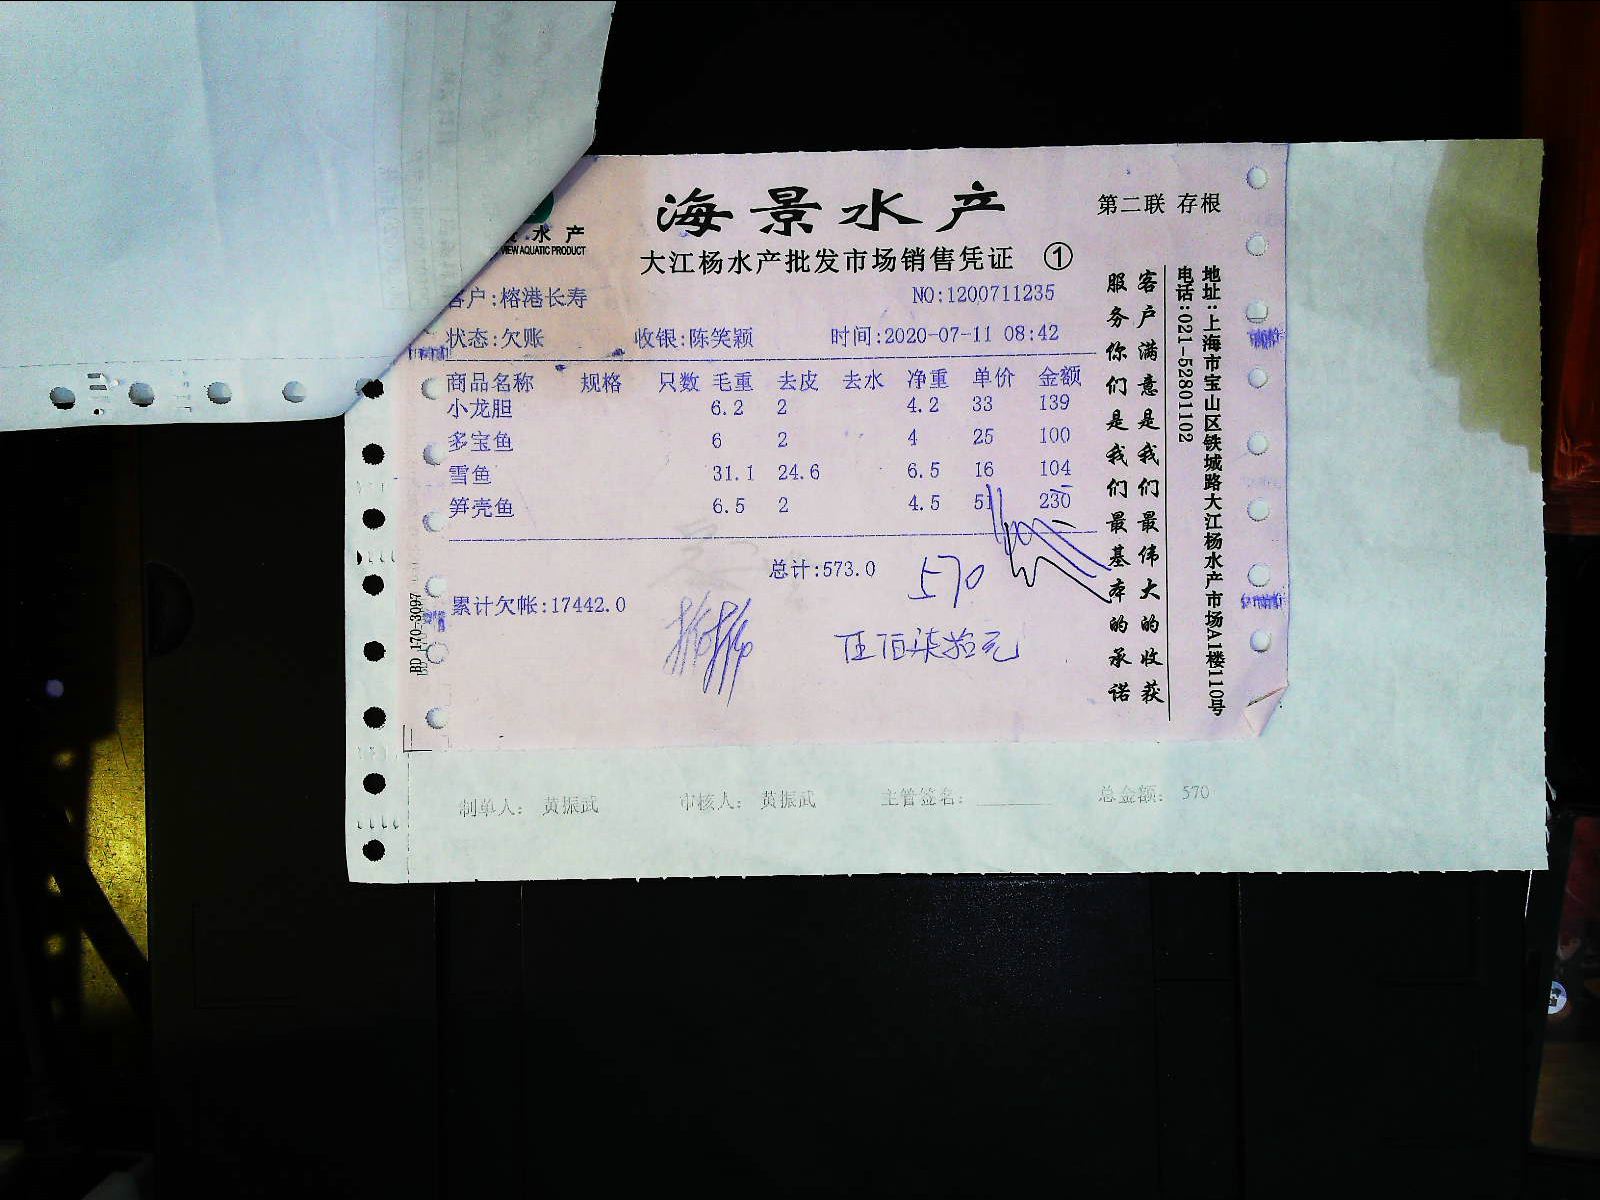 海景水产
第二联 存根
水产
VIEW AQUATIC PRODUCT
大江杨水产批发市场销售凭证 ①
客户:榕港长寿 NO:1200711235
状态:欠账 收银:陈笑颖 时间:2020-07-11 08:42
商品名称 规格 只数 毛重 去皮 去水 净重 单价 金额
小龙胆 6.2 2 4.2 33 139
多宝鱼 6 2 4 25 100
雪鱼 31.1 24.6 6.5 16 104
笋壳鱼 6.5 2 4.5 51 230
总计:573.0 570
累计欠帐:17442.0
伍佰柒拾元
客户满意是我们最伟大的收获
服务你们是我们最基本的承诺
地址:上海市宝山区铁城路大江杨水产市场A1楼110号
电话:021-52801102
BD 170-3097
制单人: 黄振武 审核人: 黄振武 主管签名: 总金额: 570